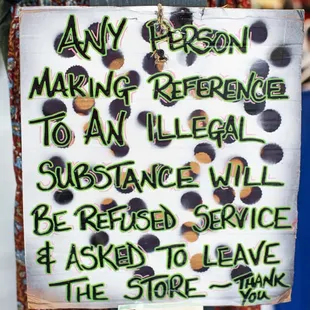 ANY PERSON
MAKING REFERENCE
TO AN ILLEGAL
SUBSTANCE WILL
BE REFUSED SERVICE
& ASKED TO LEAVE
THE STORE ~ THANK
YOU